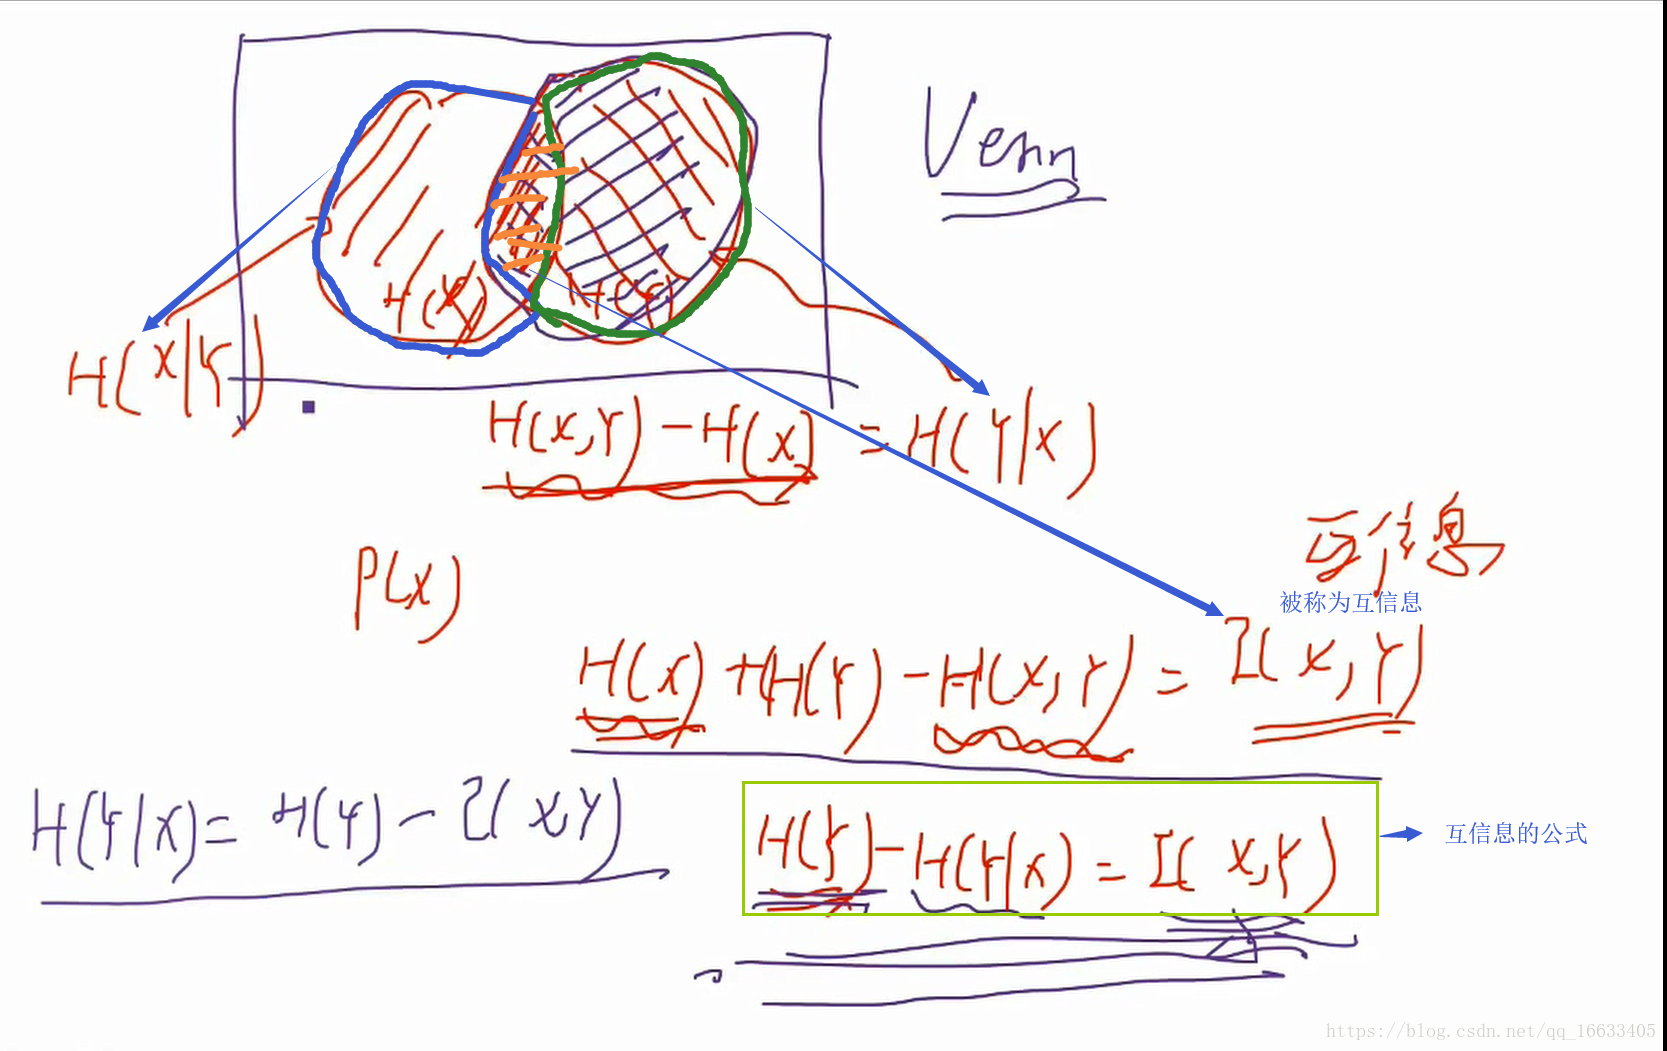 Venn
H(X)
H(Y)
H(X|Y)
H(X,Y)-H(X)=H(Y|X)
互信息
P(X)
被称为互信息
H(X)+H(Y)-H(X,Y)=I(X,Y)
H(Y|X)=H(Y)-I(X,Y)
H(Y)-H(Y|X)=I(X,Y)
互信息的公式
https://blog.csdn.net/qq_16633405